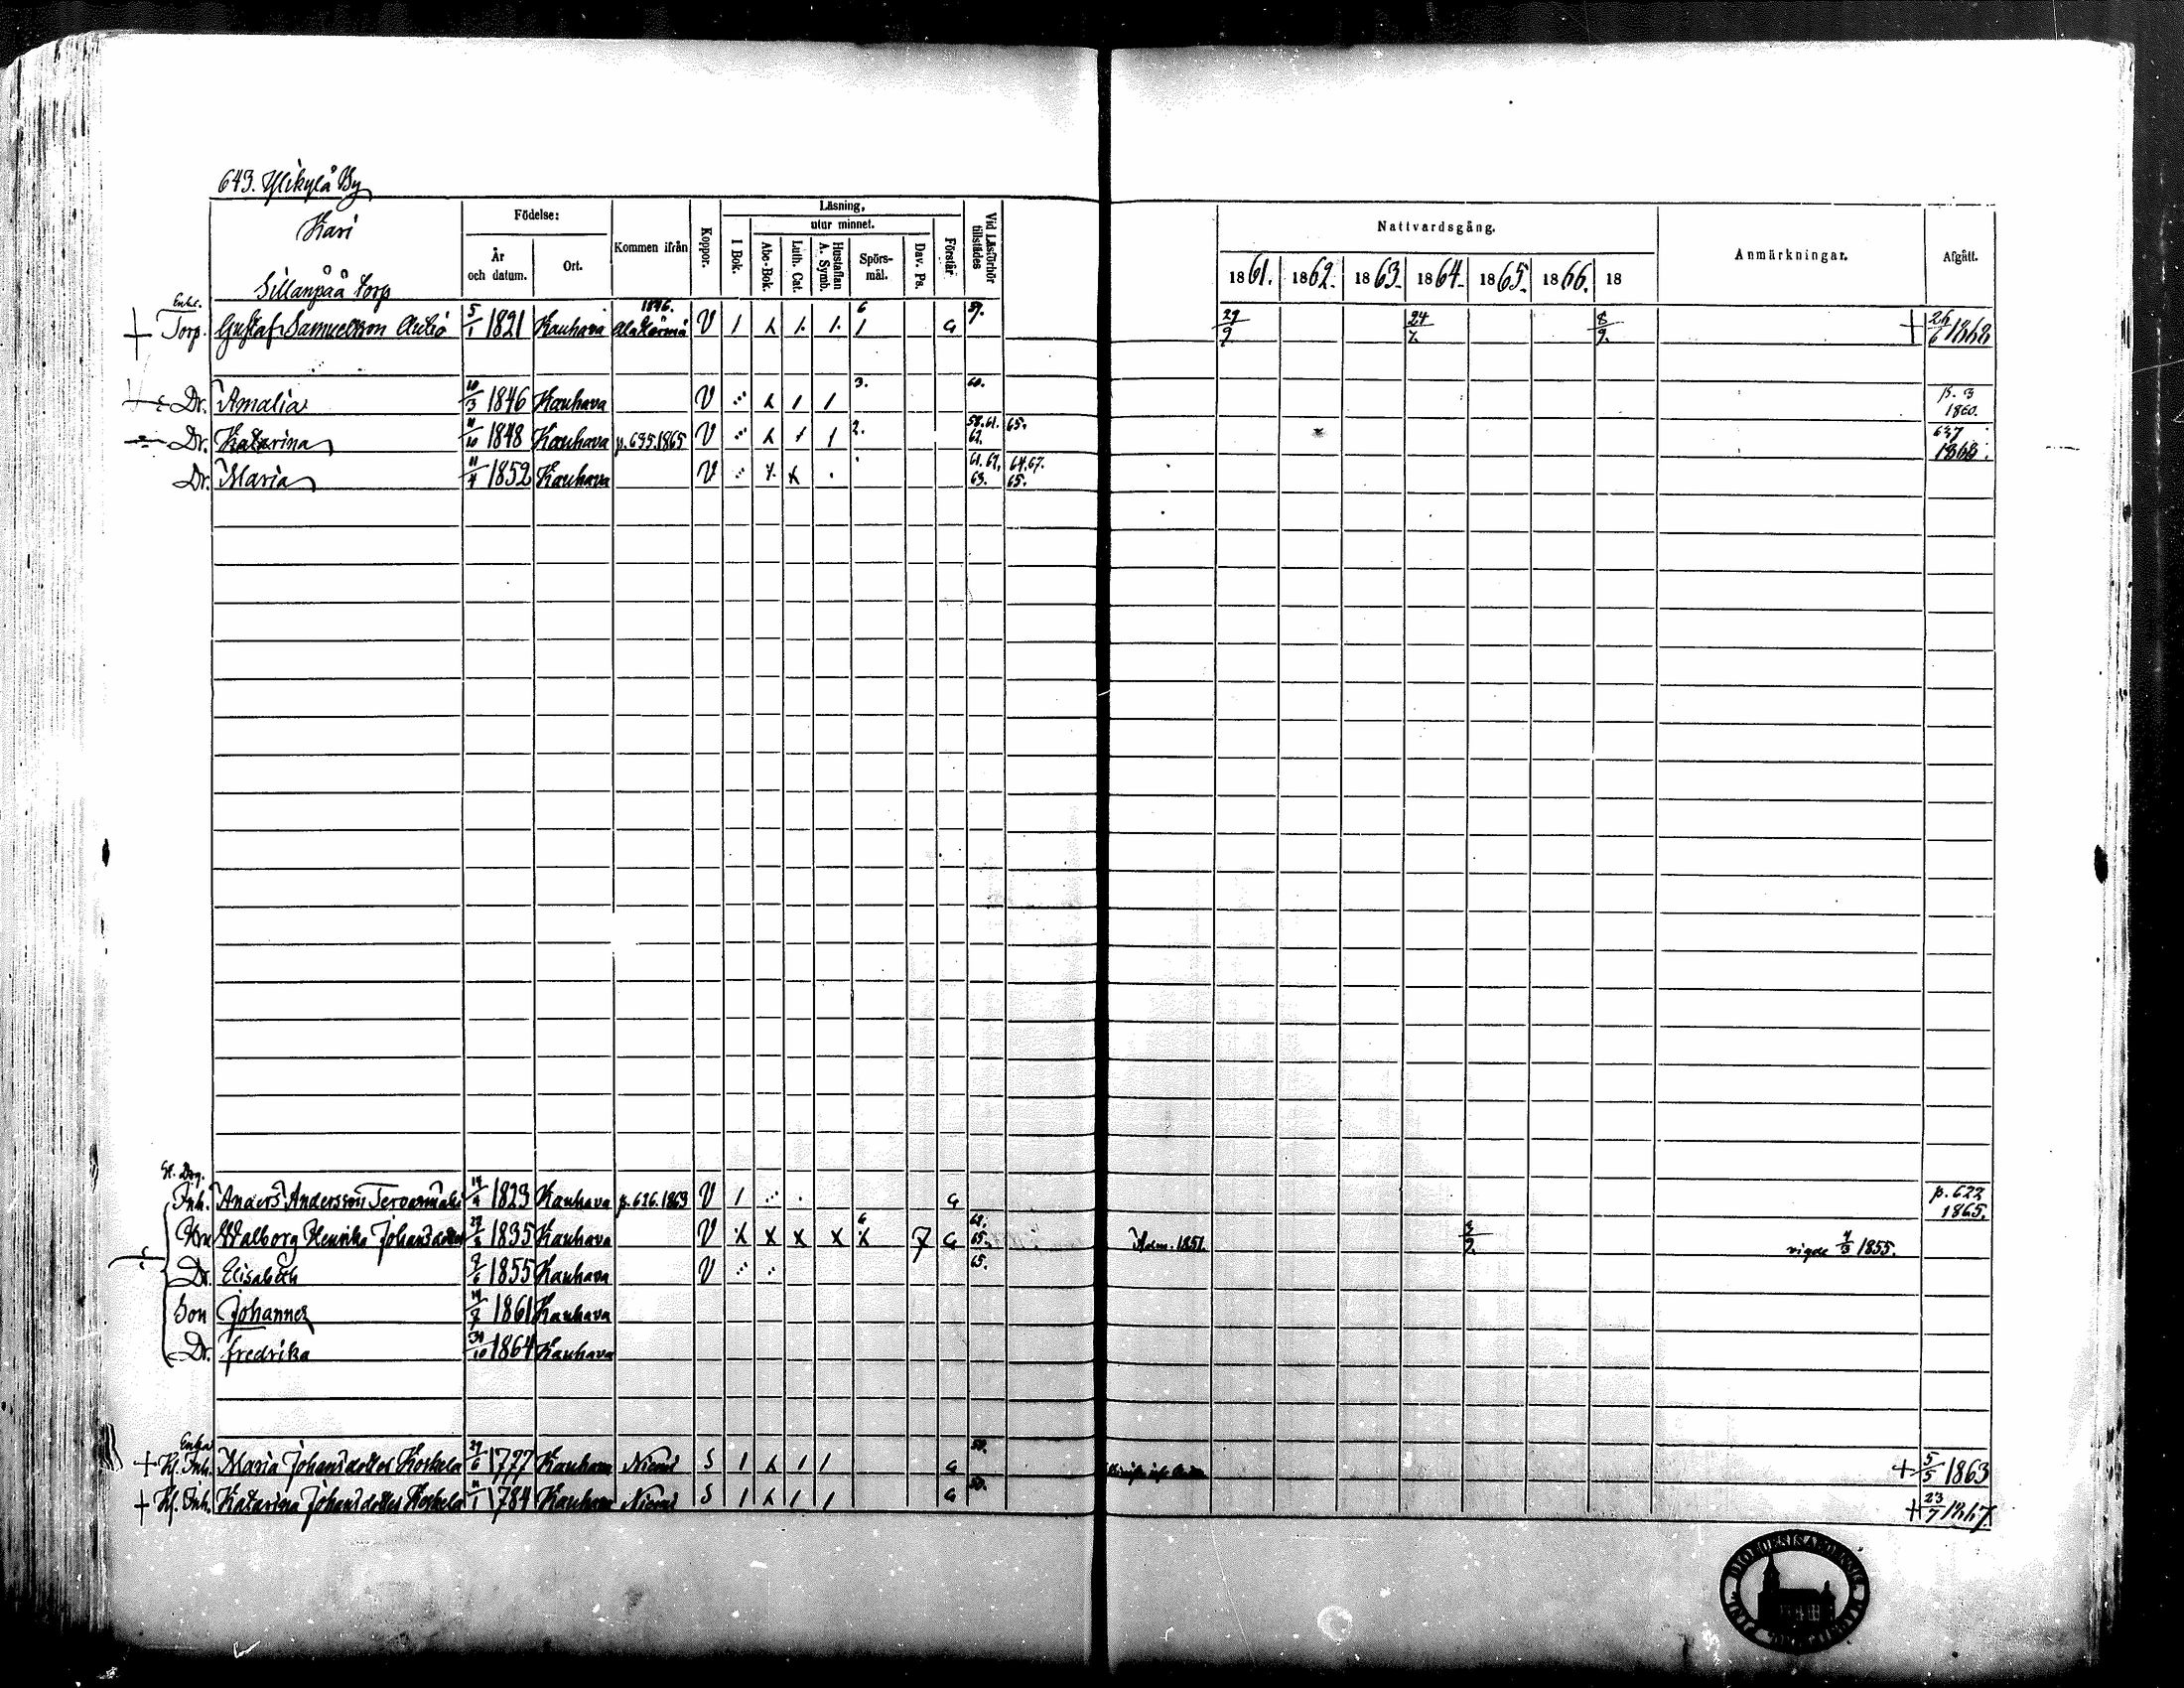 643. Ylikylä By
Kari
Sillanpää Torp
Födelse:
År och datum.
Ort.
Kommen ifrån
Koppor.
Läsning,
utur minnet.
I Bok.
Abc-Bok.
Luth. Cat.
Hustaflan A. Symb.
Spörs-mål.
Dav. Ps.
Förstår
Vid Läsförhör tillstädes
Nattvardsgång.
1861. 1862. 1863. 1864. 1865. 1866. 18
Anmärkningar.
Afgått.
Enkl. 1846. 6 59.
Torp. Gustaf Samuelsson 5/1 1821 Kauhava Alahärmä V 1 1. 1. 1 G 29/9 24/7 8/9 + 26/6 1868
Dr. Amalia 10/3 1846 Kauhava V 1 1 3. 60. p. 3 1860.
Dr. Katarina 11/10 1848 Kauhava p. 635. 1865 V 1 1 2. 58. 61. 62. 65. 637 1868.
Dr. Maria 11/4 1852 Kauhava V 61. 62. 63. 64. 67. 65.
Inh. Anders Andersson 14/4 1823 Kauhava p. 626. 1863 V 1 G p. 622 1865.
Hru Walborg Henrika Johansdotter 1835 Kauhava V X X X X X 6 7 G 65. Adm. 1851. vigde 4/3 1855.
Dr. Elisabeth 9/6 1855 Kauhava V 65.
Son Johannes 14/7 1861 Kauhava
Dr. Fredrika 31/10 1864 Kauhava
Enka
+ Inh. Maria Johansdotter Koskela 29/6 1777 Kauhava Niemi S 1 1 1 G 59. + 5/5 1863
+ Inh. Katarina Johansdotter Koskela 11/1 1784 Kauhava Niemi S 1 1 1 G + 23/7 1867